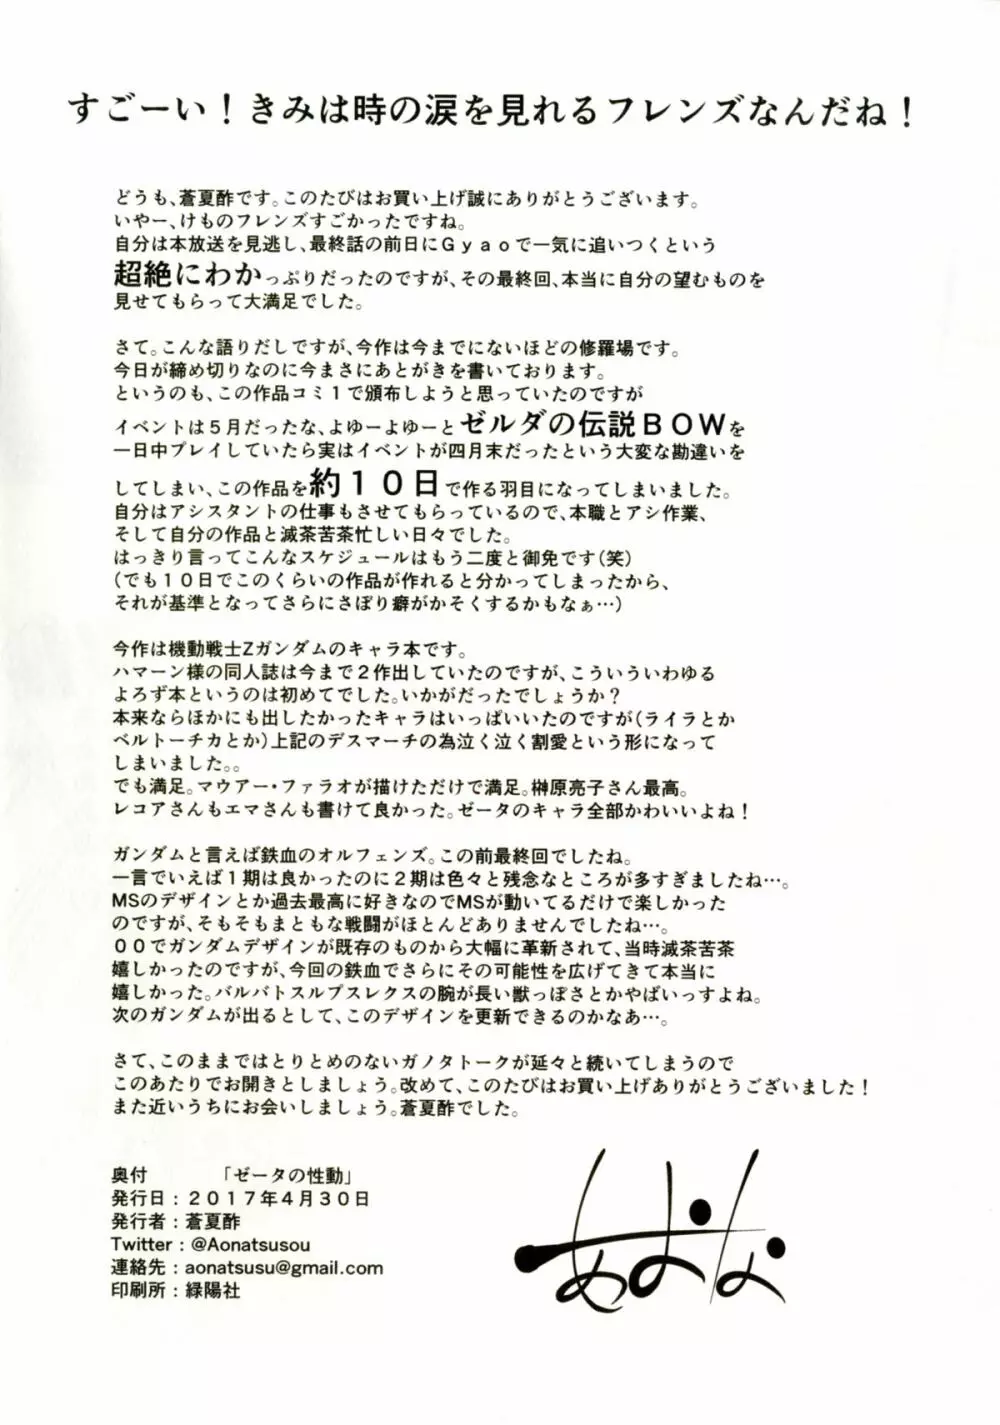 すごーい！きみは時の涙を見れるフレンズなんだね！
どうも、蒼夏酢です。このたびはお買い上げ誠にありがとうございます。
いやー、けものフレンズすごかったですね。
自分は本放送を見逃し、最終話の前日にＧｙａｏで一気に追いつくという
超絶にわかっぷりだったのですが、その最終回、本当に自分の望むものを
見せてもらって大満足でした。
さて。こんな語りだしですが、今作は今までにないほどの修羅場です。
今日が締め切りなのに今まさにあとがきを書いております。
というのも、この作品コミ１で頒布しようと思っていたのですが
イベントは５月だったな、よゆーよゆーとゼルダの伝説ＢＯＷを
一日中プレイしていたら実はイベントが四月末だったという大変な勘違いを
してしまい、この作品を約１０日で作る羽目になってしまいました。
自分はアシスタントの仕事もさせてもらっているので、本職とアシ作業、
そして自分の作品と滅茶苦茶忙しい日々でした。
はっきり言ってこんなスケジュールはもう二度と御免です（笑）
（でも１０日でこのくらいの作品が作れると分かってしまったから、
それが基準となってさらにさぼり癖がかそくするかもなぁ…）
今作は機動戦士Zガンダムのキャラ本です。
ハマーン様の同人誌は今まで２作出していたのですが、こういういわゆる
よろず本というのは初めてでした。いかがだったでしょうか？
本来ならほかにも出したかったキャラはいっぱいいたのですが（ライラとか
ベルトーチカとか）上記のデスマーチの為泣く泣く割愛という形になって
しまいました。。
でも満足。マウアー・ファラオが描けただけで満足。榊原亮子さん最高。
レコアさんもエマさんも書けて良かった。ゼータのキャラ全部かわいいよね！
ガンダムと言えば鉄血のオルフェンズ。この前最終回でしたね。
一言でいえば１期は良かったのに２期は色々と残念なところが多すぎましたね…。
MSのデザインとか過去最高に好きなのでMSが動いてるだけで楽しかった
のですが、そもそもまともな戦闘がほとんどありませんでしたね…。
００でガンダムデザインが既存のものから大幅に革新されて、当時滅茶苦茶
嬉しかったのですが、今回の鉄血でさらにその可能性を広げてきて本当に
嬉しかった。バルバトスルプスレクスの腕が長い獣っぽさとかやばいっすよね。
次のガンダムが出るとして、このデザインを更新できるのかなあ…。
さて、このままではとりとめのないガノタトークが延々と続いてしまうので
このあたりでお開きとしましょう。改めて、このたびはお買い上げありがとうございました！
また近いうちにお会いしましょう。蒼夏酢でした。
奥付　　　「ゼータの性動」
発行日：２０１７年４月３０日
発行者：蒼夏酢
Twitter：@Aonatsusou
連絡先：aonatsusu@gmail.com
印刷所：緑陽社
あおな